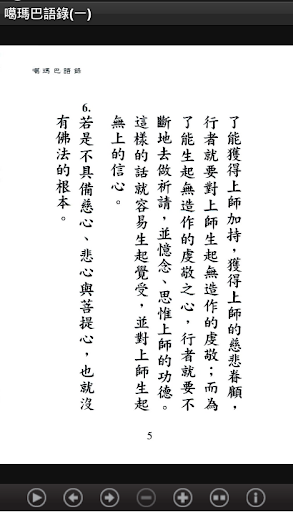 噶瑪巴語錄(一)
噶瑪巴語錄
了能獲得上師加持，獲得上師的慈悲眷顧，
行者就要對上師生起無造作的虔敬；而為
了能生起無造作的虔敬之心，行者就要不
斷地去做祈請，並憶念、思惟上師的功德。
這樣的話就容易生起覺受，並對上師生起
無上的信心。
6.若是不具備慈心、悲心與菩提心，也就沒
有佛法的根本。
5